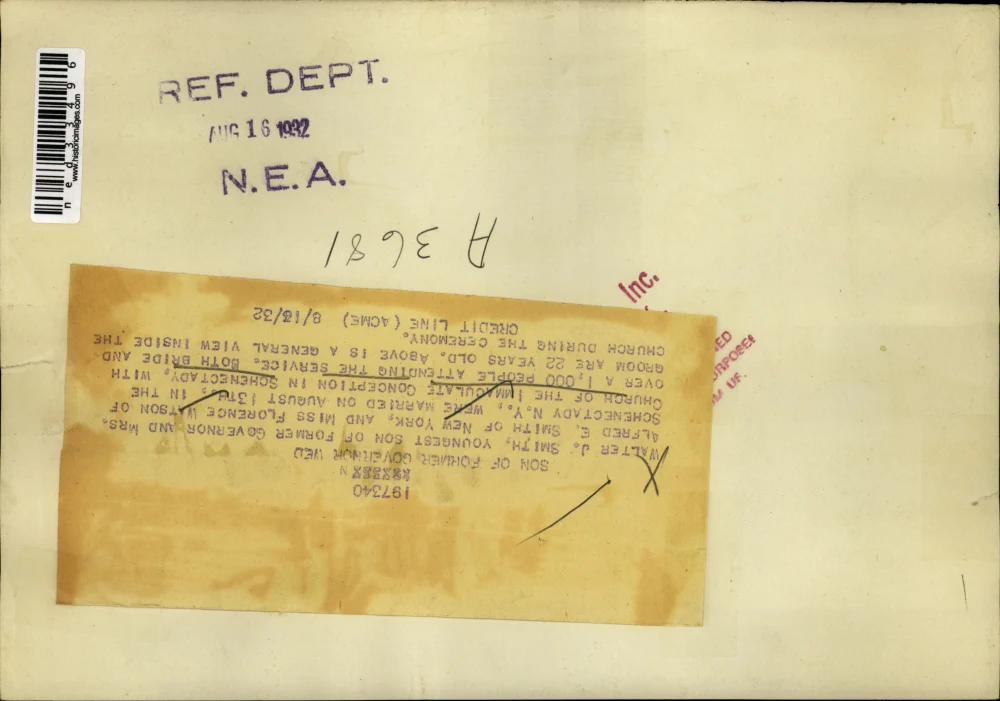 REF. DEPT.
AUG 16 1932
N.E.A.
ned33496
www.historicimages.com
A 3681
Inc.
197340
N
SON OF FORMER GOVERNOR WED
WALTER J. SMITH, YOUNGEST SON OF FORMER GOVERNOR AND MRS.
ALFRED E. SMITH OF NEW YORK, AND MISS FLORENCE WATSON OF
SCHENECTADY N.Y., WERE MARRIED ON AUGUST 13TH, IN THE
CHURCH OF THE IMMACULATE CONCEPTION IN SCHENECTADY, WITH
OVER A 1,000 PEOPLE ATTENDING THE SERVICE. BOTH BRIDE AND
GROOM ARE 22 YEARS OLD. ABOVE IS A GENERAL VIEW INSIDE THE
CHURCH DURING THE CEREMONY.
CREDIT LINE (ACME) 8/13/32